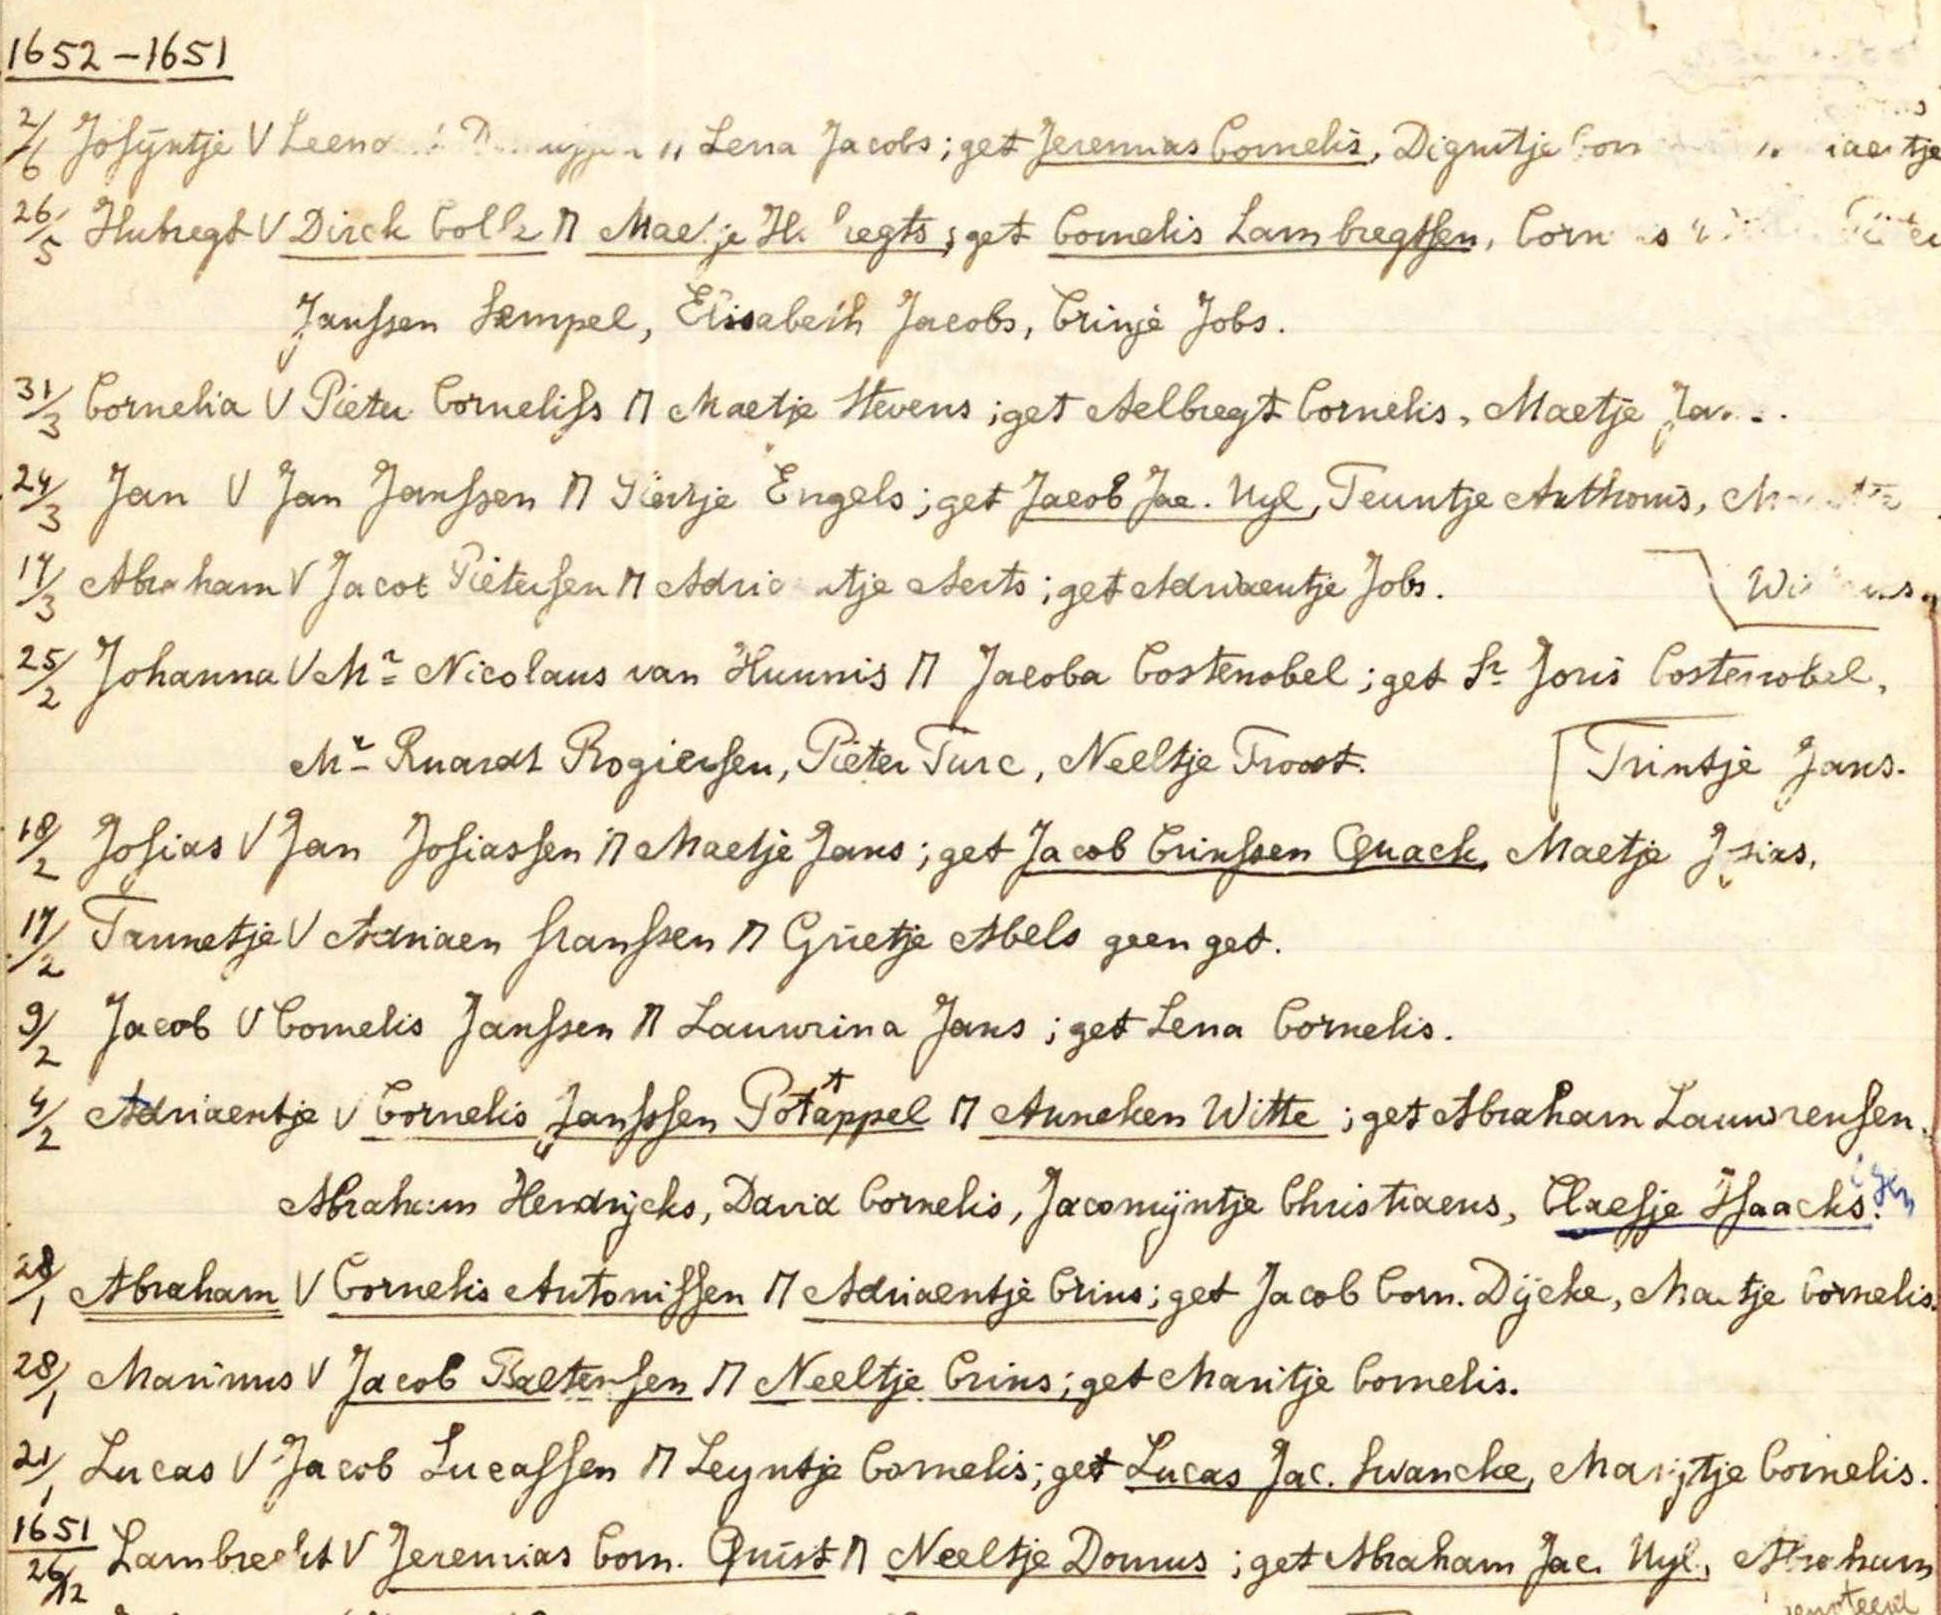 1652-1651
2/6 Josyntje V Leen Lena Jacobs; get Jeremias Cornelis, Digntje iaentje
26/5 Hubregt V Dirck Π get Cornelis Lambregtsen,
Janssen Sempel, Elisabeth Jacobs, Crinje Jobs.
31/3 Cornelia V Pieter Corneliss Π Maetje Stevens; get Aelbregt Cornelis, Maetje
24/3 Jan V Jan Janssen Π Engels; get Jacob Jac. Uyl, Teuntje Anthonis,
17/3 Abraham V Jacob Pietersen Π Adriaentje Aerts; get Adriaentje Jobs.
25/2 Johanna V Mr Nicolaus van Hunnis Π Jacoba Costenobel; get Sr Joris Costenobel,
Mr Ruardt Rogiersen, Pieter Turc, Neeltje Troost. Trintje Jans.
18/2 Josias V Jan Josiassen Π Maetje Jans; get Jacob Crinssen Quack, Maetje Josias,
17/2 Tannetje V Adriaen franssen Π Grietje Abels geen get.
9/2 Jacob V Cornelis Janssen Π Lauwrina Jans; get Lena Cornelis.
4/2 Adriaentje V Cornelis Janssen Potappel Π Anneken Witte; get Abraham Lauwrensen,
Abraham Hendrycks, David Cornelis, Jacomijntje Christiaens, Claesje Isaacks.
28/1 Abraham V Cornelis Antonissen Π Adriaentje Crins; get Jacob Corn. Dijcke, Cornelis.
28/1 Marinus V Jacob Baltensen Π Neeltje Crins; get Maritje Cornelis.
21/1 Lucas V Jacob Lucassen Π Leyntje Cornelis; get Lucas Jac. Swancke, Marijtje Cornelis.
1651
26/12 Lambrecht V Jeremias Corn. Quist Π Neeltje Domus; get Abraham Jac. Uyl, Abraham